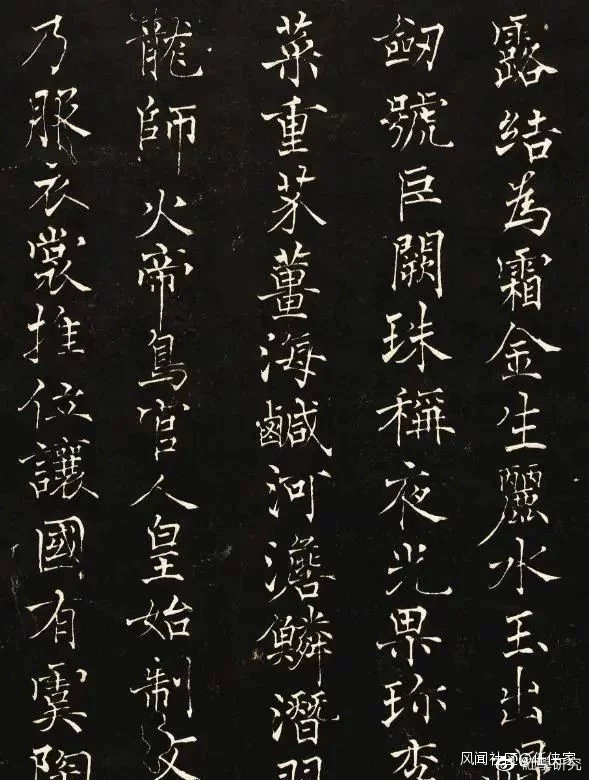 露結為霜金生麗水玉出
劒號巨闕珠稱夜光果珍李
菜重芥薑海鹹河澹鱗潛羽
龍師火帝鳥官人皇始制文
乃服衣裳推位讓國有虞陶
风闻社区